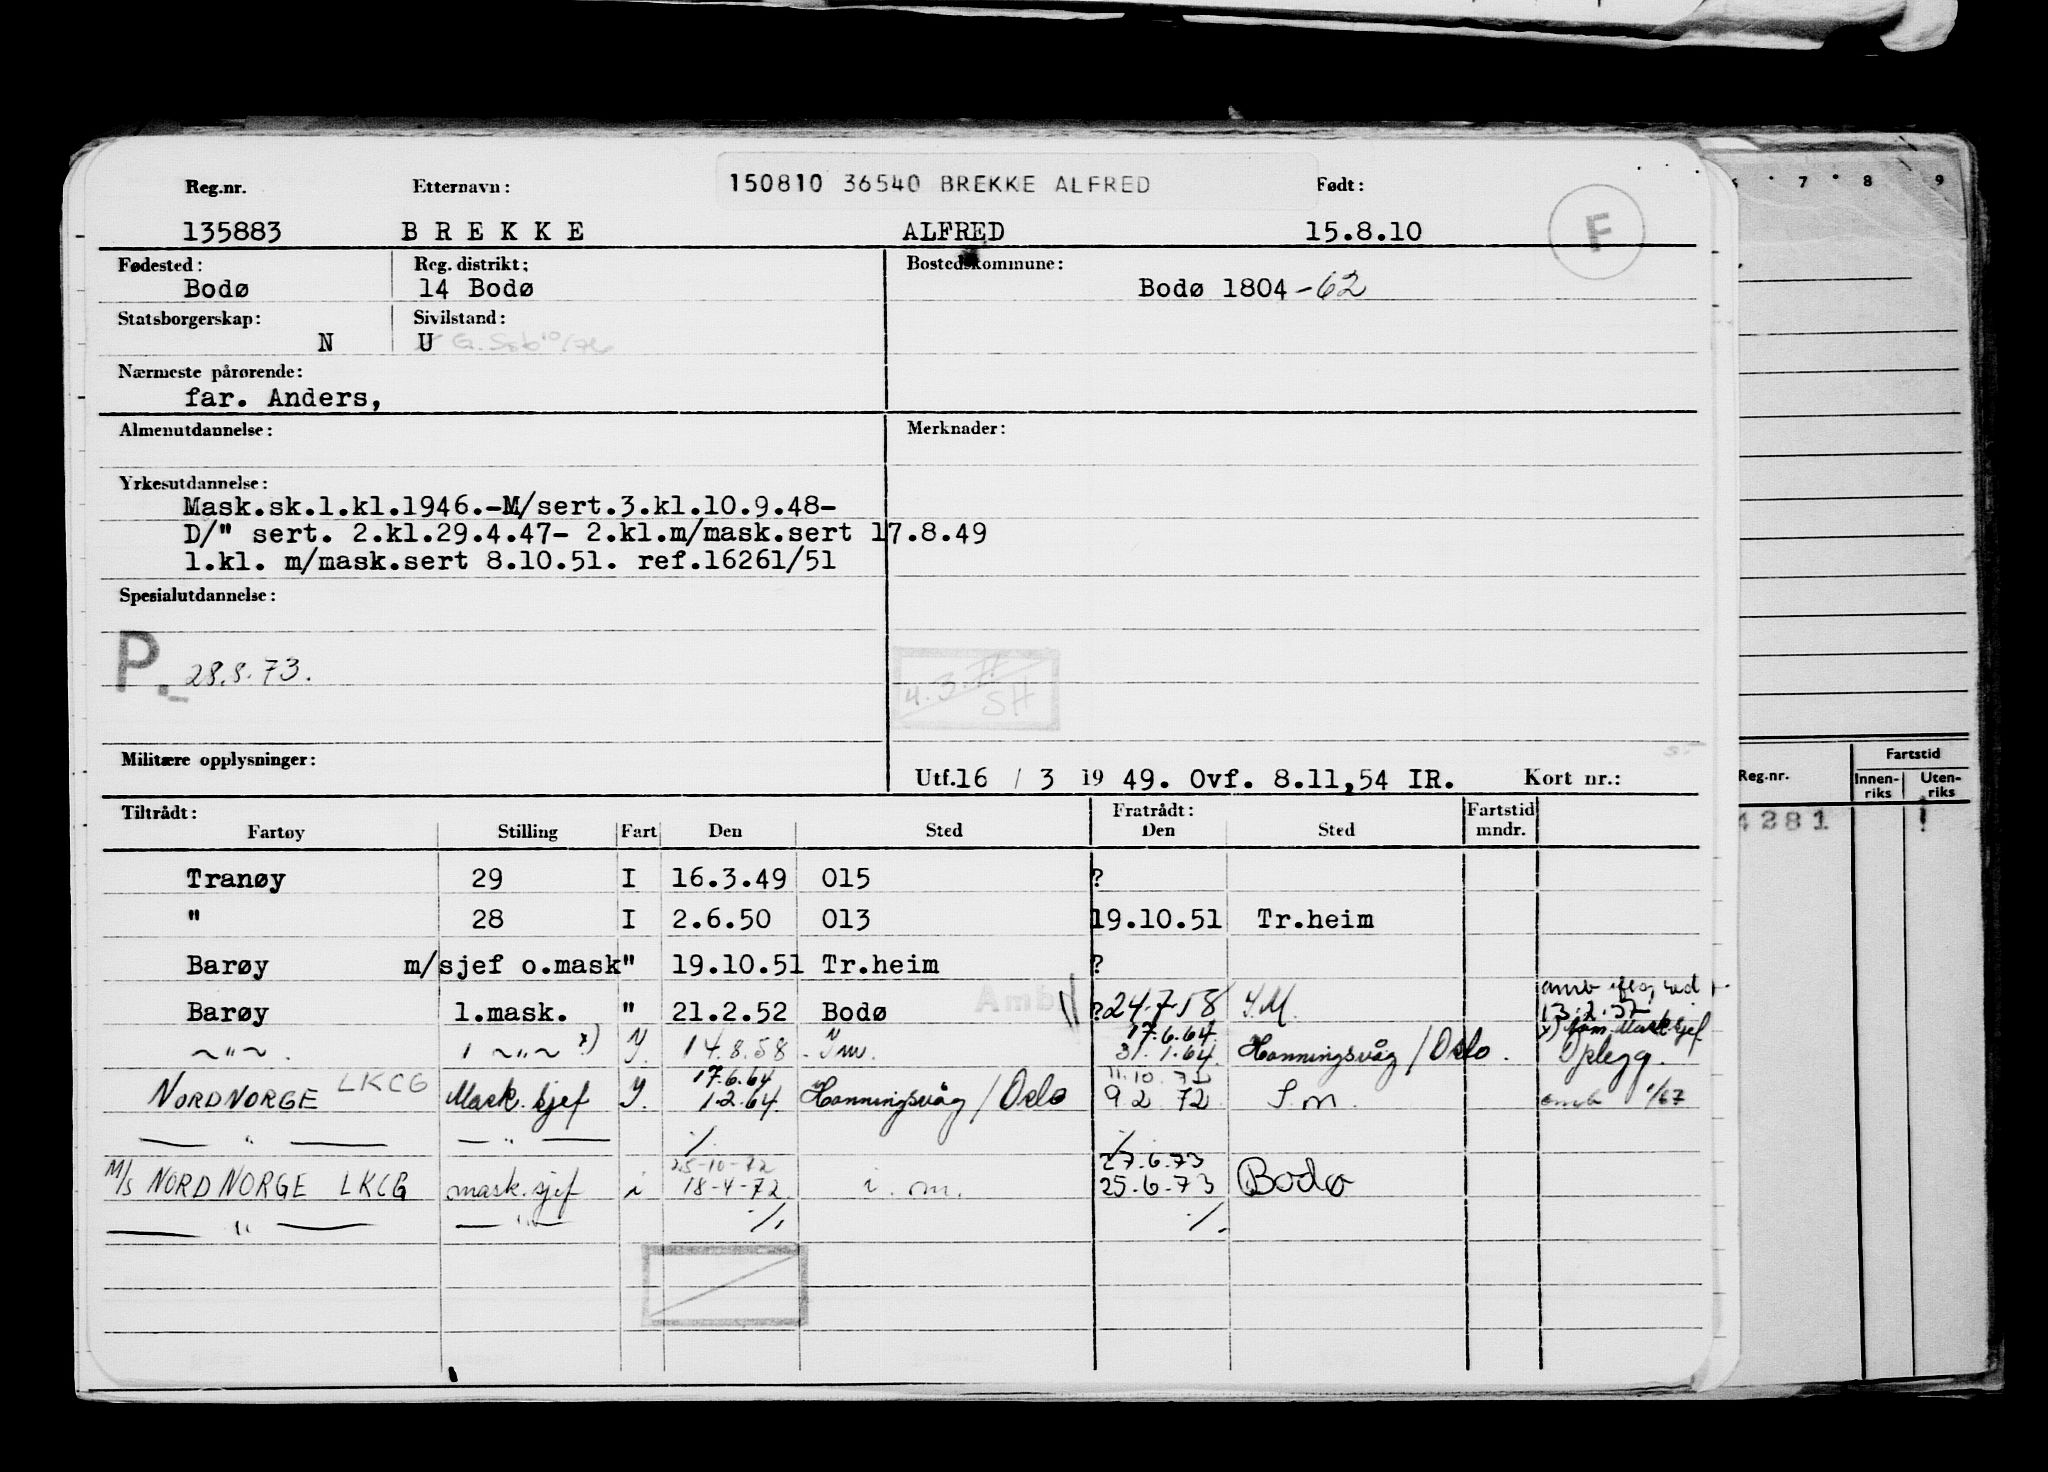 150810 36540 BREKKE ALFRED
Reg.nr. Etternavn: Født:
135883 B R E K K E ALFRED 15.8.10 F
Fødested: Reg. distrikt: Bostedskommune:
Bodø 14 Bodø Bodø 1804 -62
Statsborgerskap: Sivilstand:
N U
Nærmeste pårørende:
far. Anders,
Almenutdannelse: Merknader:
Yrkesutdannelse:
Mask.sk.1.kl.1946.-M/sert.3.kl.10.9.48-
D/" sert. 2.kl.29.4.47- 2.kl.m/mask.sert 17.8.49
1.kl. m/mask.sert 8.10.51. ref.16261/51
Spesialutdannelse:
P.- 28.8.73.
SH
Militære opplysninger:
Utf.16 / 3 19 49. Ovf. 8.11,54 IR. Kort nr.:
Tiltrådt: Fratrådt: Fartstid
Fartøy Stilling Fart Den Sted Den Sted mndr.
Tranøy 29 I 16.3.49 015 ?
" 28 I 2.6.50 013 19.10.51 Tr.heim
Barøy m/sjef o.mask " 19.10.51 Tr.heim ?
Barøy 1.mask. " 21.2.52 Bodø ? 24.7.58 I.M.
~"~. 1 ~"~ x) I. 14.8.58 17.6.64 31.1.64 Honningsvåg / Oslo. Oplegg.
NORDNORGE LKCG Mask. sjef I. 17.6.64 1.2.64 Honningsvåg / Oslo 9.2 72
— " — — " — ./. ./.
M/S NORD NORGE LKCG mask.sjef i 25-10-72 18-4-72 i. m. 27.6.73 25.6.73 Bodø
— " — — " — ./. ./.
7 8 9
Reg.nr. Fartstid
Innen-riks Uten-riks
4281